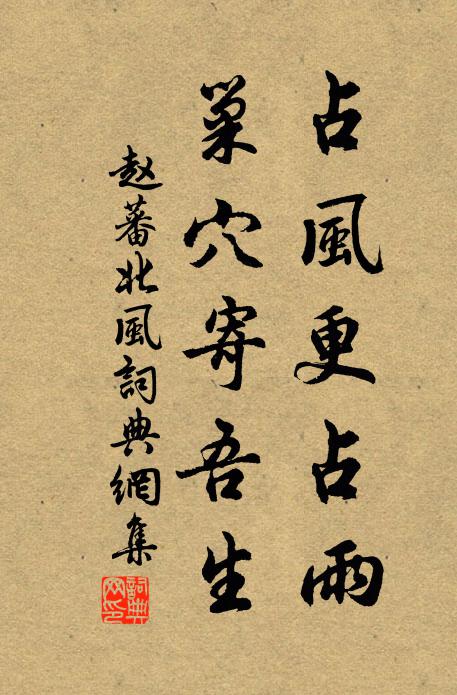 占風更占雨
巢穴寄吾生
赵蕃北風詞典網集
詞典网印